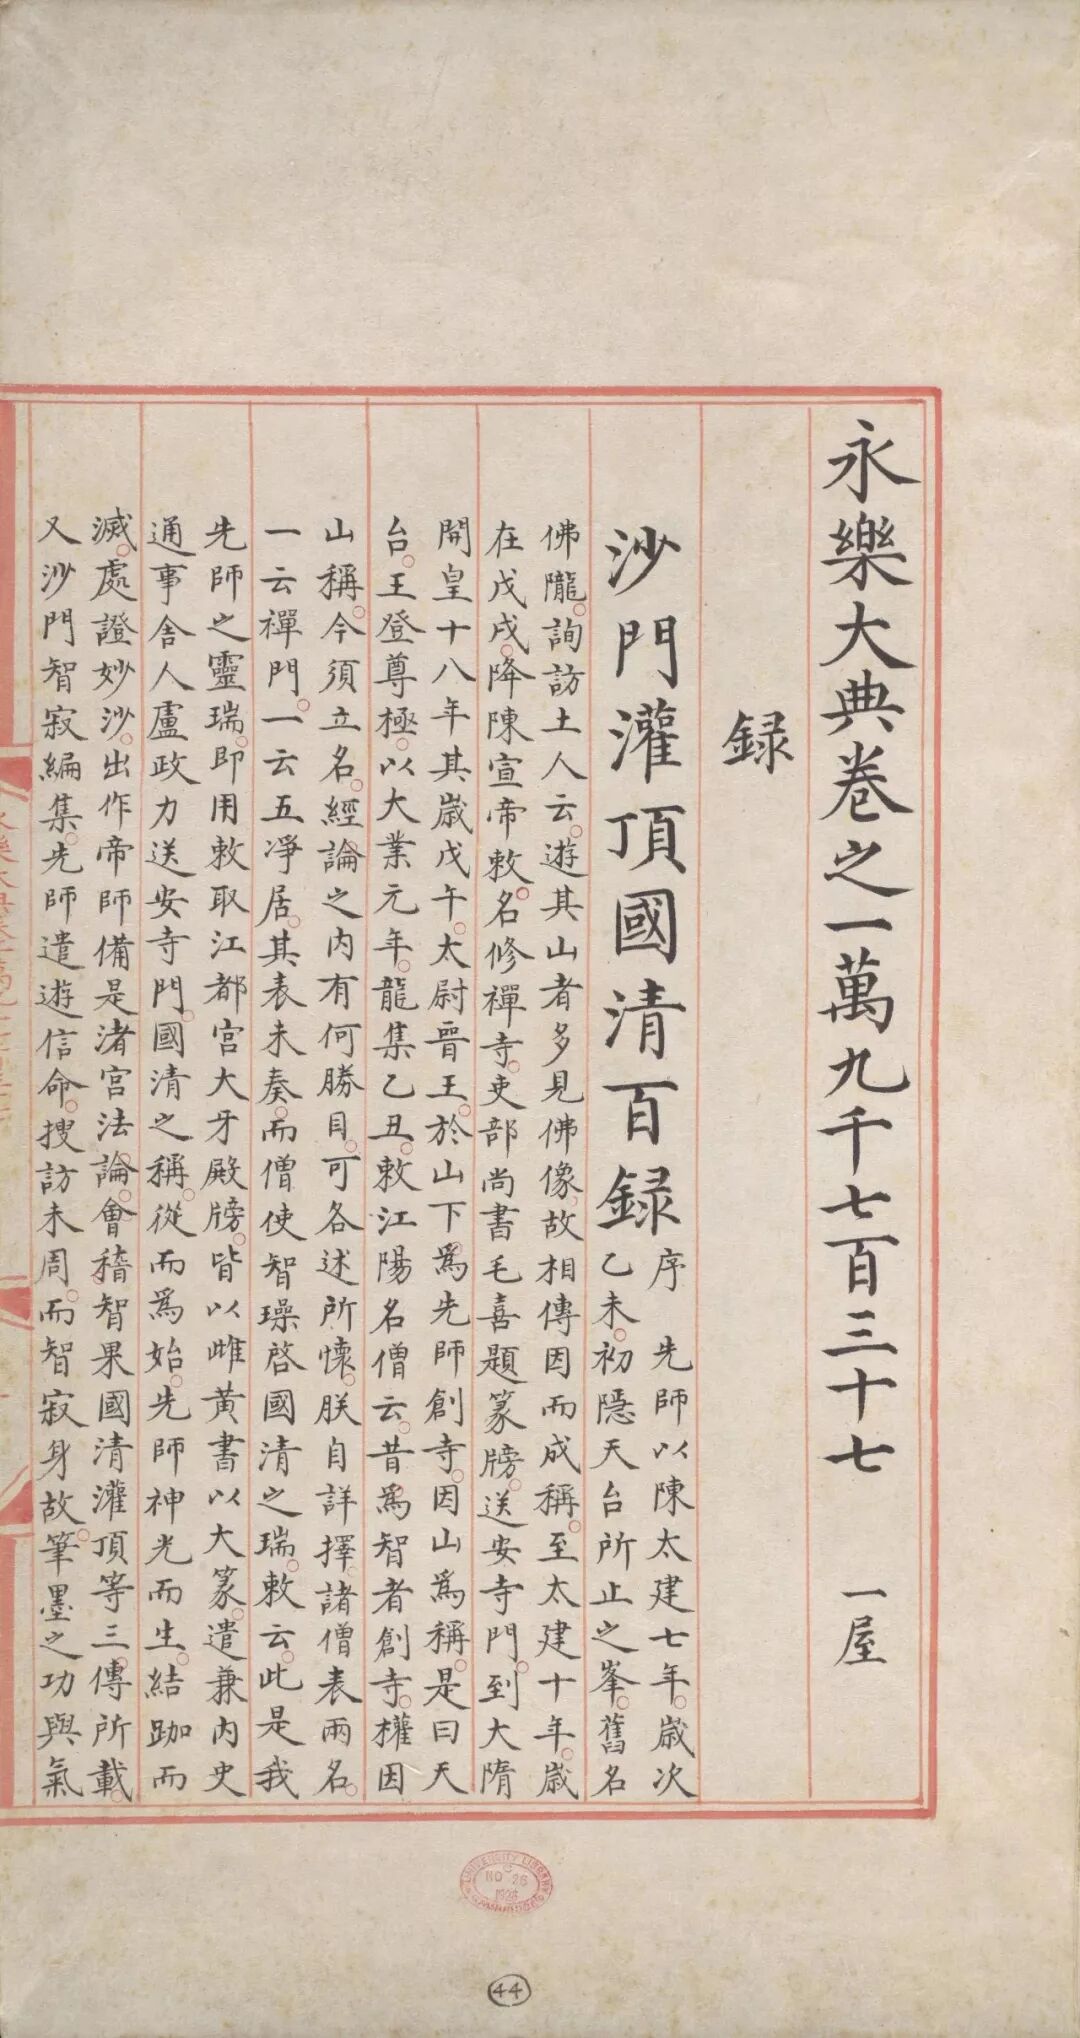 永樂大典卷之一萬九千七百三十七 一屋
録
沙門灌頂國清百録 序 先師以陳太建七年歲次
乙未初隱天台所止之峯舊名
佛隴詢訪土人云遊其山者多見佛像故相傳因而成稱至太建十年歲
在戊戌降陳宣帝敕名修禪寺吏部尚書毛喜題篆牓送安寺門到大隋
開皇十八年其歲戊午太尉晉王於山下爲先師創寺因山爲稱是曰天
台王登尊極以大業元年龍集乙丑敕江陽名僧云昔爲智者創寺權因
山稱今須立名經論之內有何勝目可各述所懷朕自詳擇諸僧表兩名
一云禪門一云五淨居其表未奏而僧使智璪啓國清之瑞敕云此是我
先師之靈瑞即用敕取江都宮大牙殿牓皆以雌黃書以大篆遣兼內史
通事舍人盧政力送安寺門國清之稱從而爲始先師神光而生結跏而
滅處證妙沙出作帝師備是渚宮法論會稽智果國清灌頂等三傳所載
又沙門智寂編集先師遣遊信命搜訪未周而智寂身故筆墨之功與氣
UNIVERSITY LIBRARY
CAMBRIDGE
44